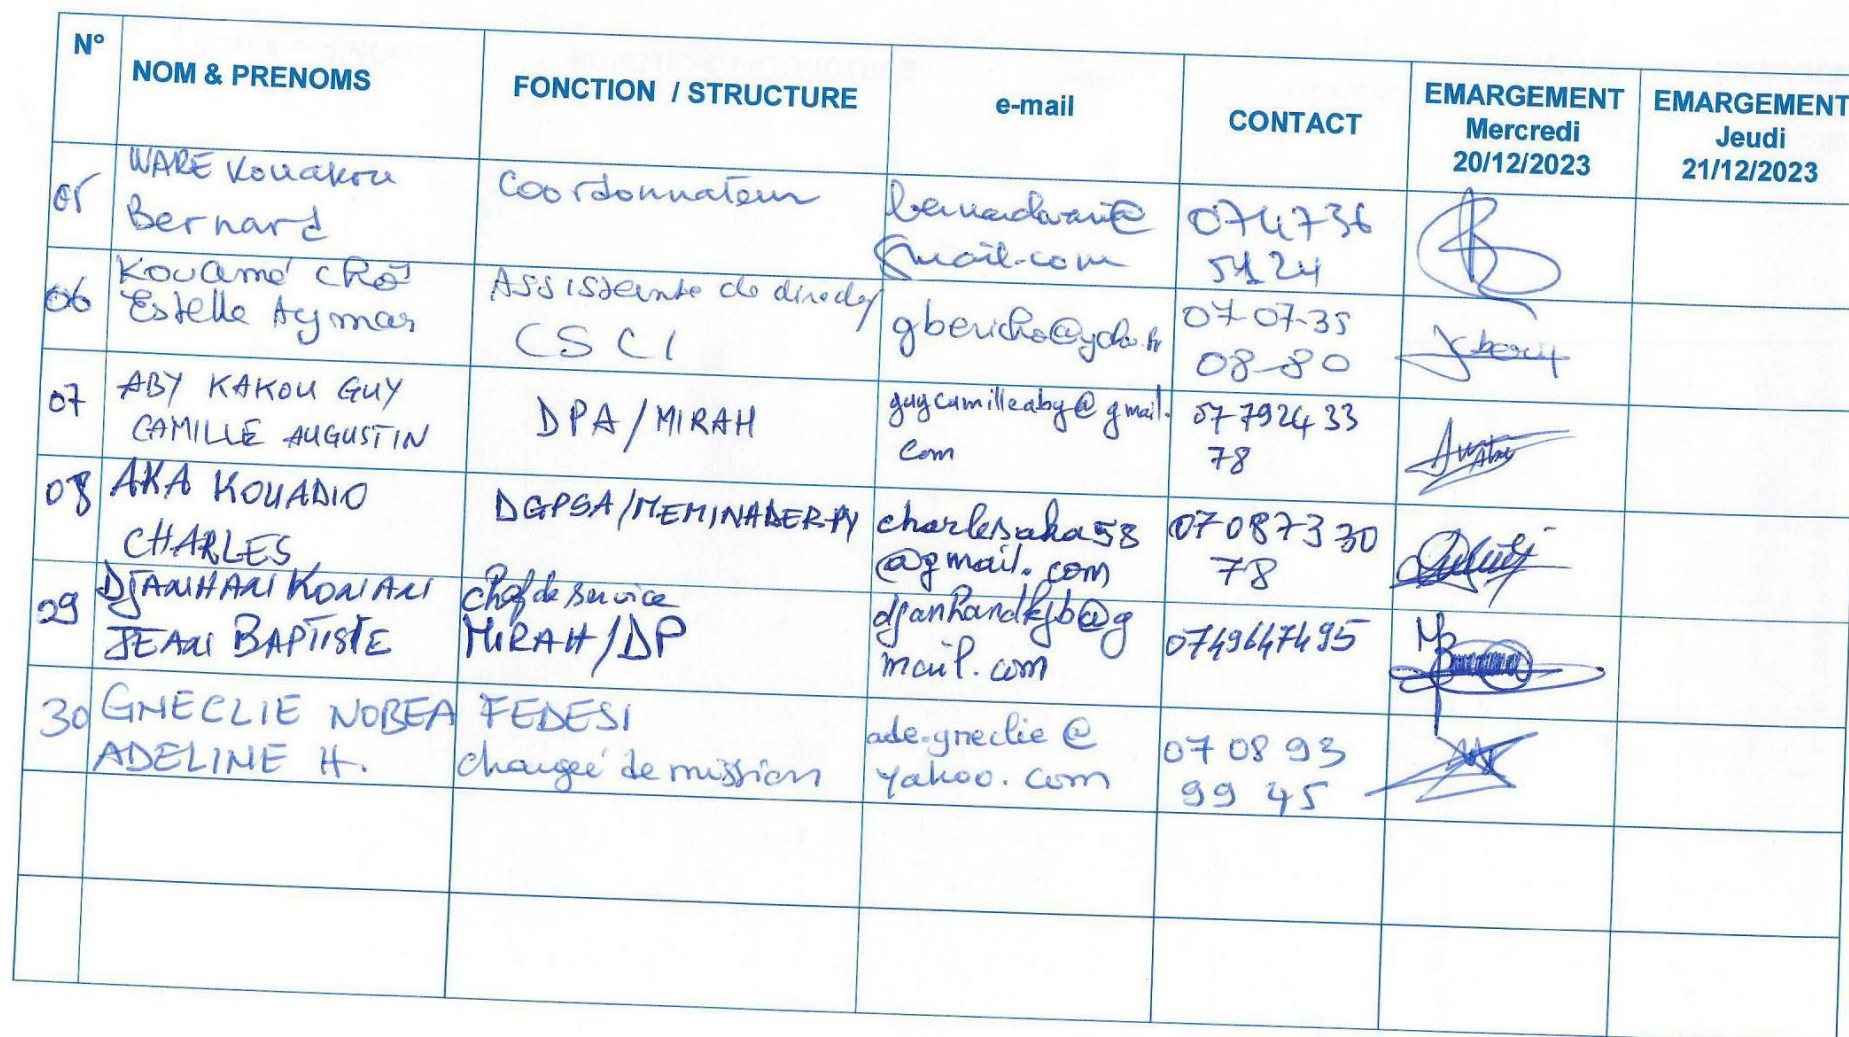 N°
NOM & PRENOMS
FONCTION / STRUCTURE
e-mail
CONTACT
EMARGEMENT
Mercredi
20/12/2023
EMARGEMENT
Jeudi
21/12/2023
05
WARE Kouakou
Bernard
Coordonnateur
bernardware@
gmail.com
074736
5124
06
Kouamé
Estelle Aymar
Assistante de
CSCI
07-07-35
08-80
07
ABY KAKOU GUY
CAMILLE AUGUSTIN
DPA/MIRAH
guycamilleaby@gmail.
com
07792433
78
08
AKA KOUADIO
CHARLES
DGPSA/MEMINADERPV
charlesaka58
@gmail.com
07087330
78
29
DJANHAN KONAN
JEAN BAPTISTE
Chef de service
MIRAH/DP
djanhandkjb@g
mail.com
0749647495
30
GNECLIE NOBEA
ADELINE H.
FEDESI
chargée de mission
ade.gneclie@
yahoo.com
070893
9945